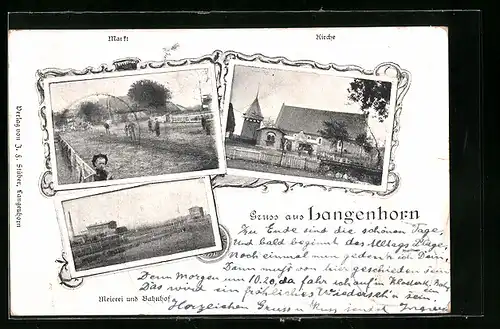 Markt
Kirche
Verlag von J. F. Stüber, Langenhorn
Gruss aus Langenhorn
Zu Ende sind die schönen Tage,
und bald beginnt des Alltags Plage,
Noch einmal nun gedenk ich Dein,
Dann muss von hier geschieden sein
Denn morgen um 10.20, da fahr ich auf in
Das wird ein fröhliches Wiedersehn sein
Herzlichen Gruss u. Kuss
Meierei und Bahnhof